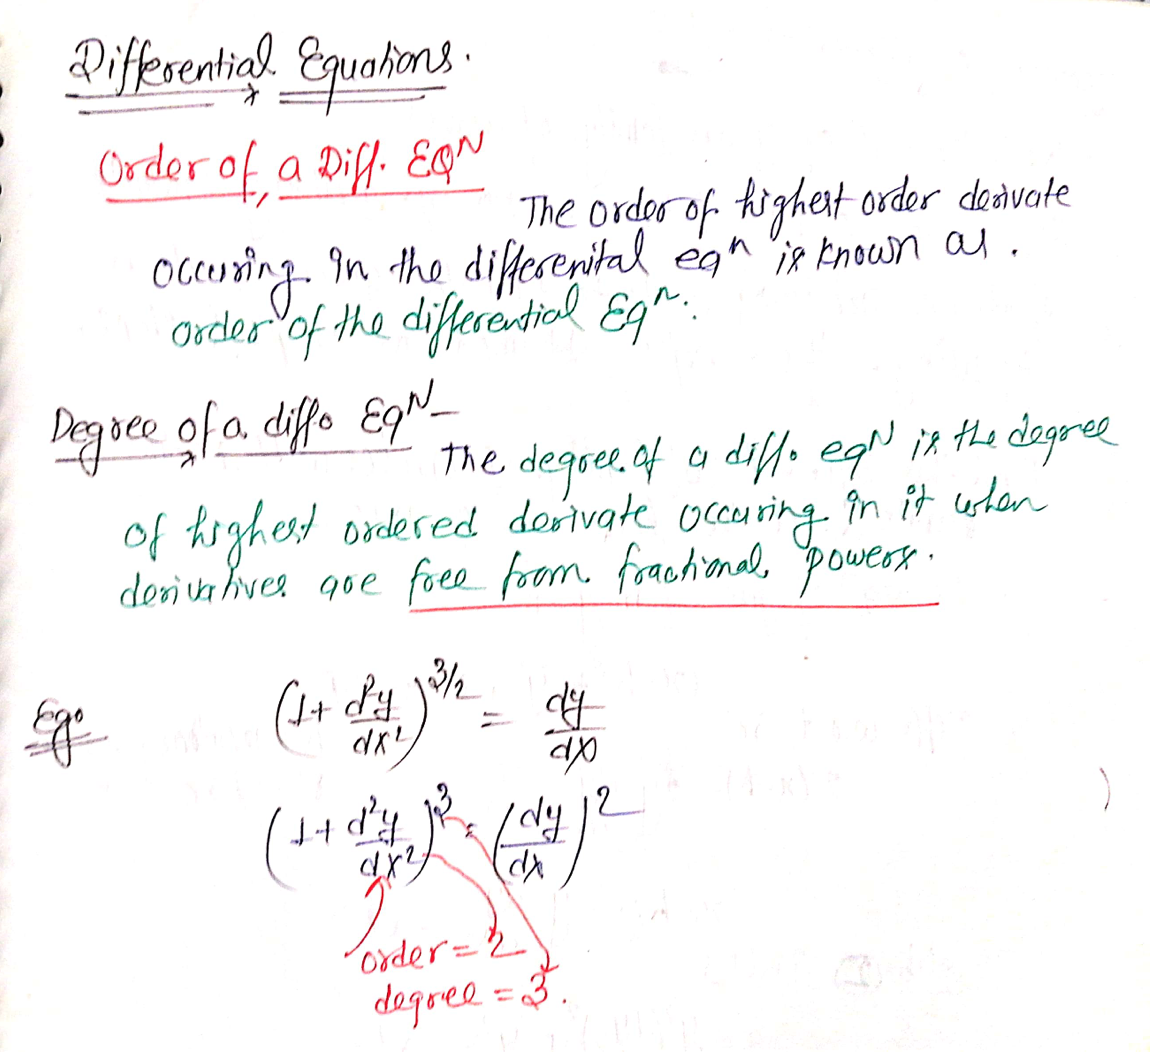 Differential Equations.
Order of a Diff. EQN
The order of highest order derivate
occuring in the differenital eqn is known as.
order of the differential Eqn.
Degree of a diff. EqN-
The degree of a diff. eqN is the degree
of highest ordered derivate occuring in it when
derivatives are free from fractional powers.
Eg.
(1+ d²y/dx²)^3/2 = dy/dx
(1+ d²y/dx²)^3 = (dy/dx)^2
order = 2
degree = 3.